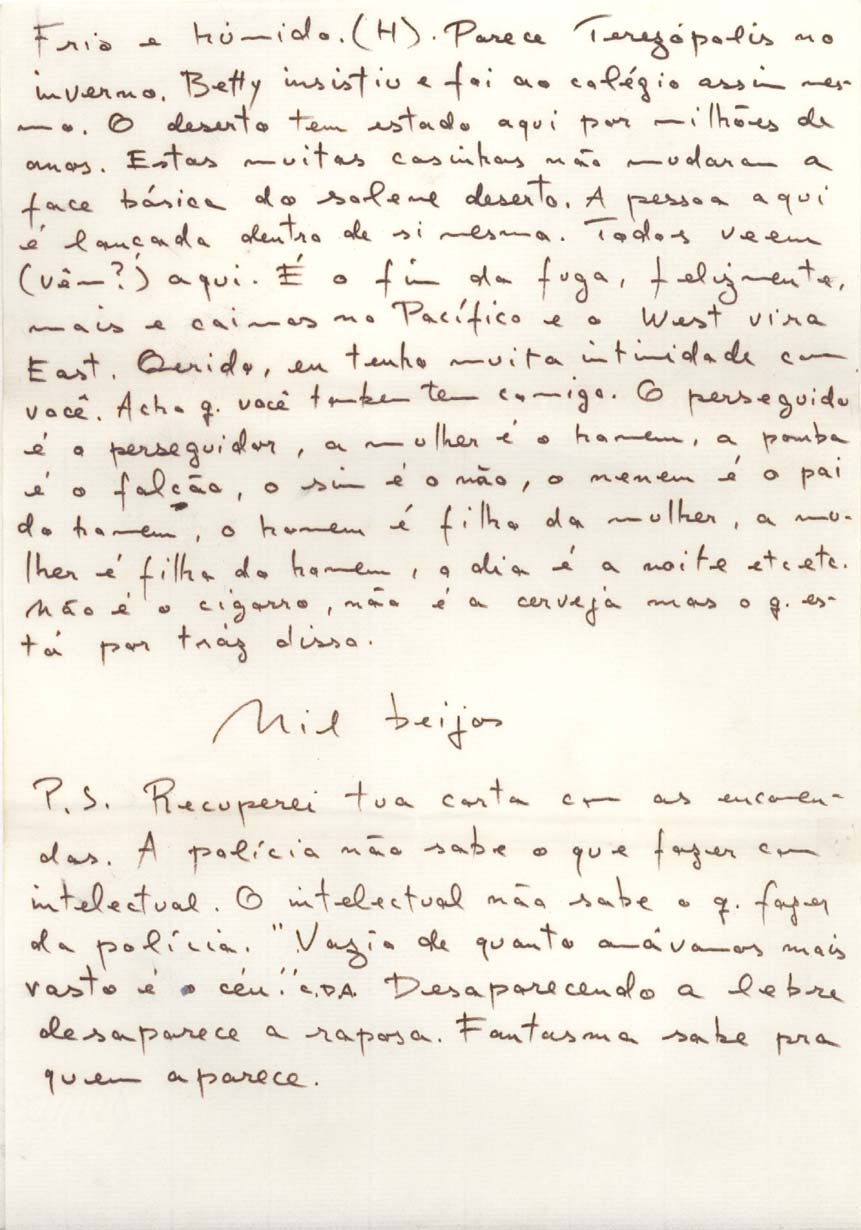 Frio e húmido. (H). Parece Terezópolis no
inverno. Betty insistiu e foi ao colégio assim mes-
mo. O deserto tem estado aqui por milhões de
anos. Estas muitas casinhas não mudaram a
face básica do solene deserto. A pessoa aqui
é lançada dentro de si mesma. Todos veem
(vêm?) aqui. É o fim da fuga, felizmente,
mais e caimos no Pacífico e o West vira
East. Qerido, eu tenho muita intimidade com
você. Acho q. você tambem tem comigo. O perseguido
é o perseguidor, a mulher é o homem, a pomba
é o falcão, o sim é o não, o nenem é o pai
do homem, o homem é filho da mulher, a mu-
lher é filha do homem, o dia é a noite etc etc.
Não é o cigarro, não é a cerveja mas o q. es-
tá por tráz disso.
Mil beijos
P.S. Recuperei tua carta com as encomen-
das. A polícia não sabe o que fazer com
intelectual. O intelectual não sabe o q. fazer
da polícia. "Vazio de quanto amávamos mais
vasto é o céu." C.D.A. Desaparecendo a lebre
desaparece a raposa. Fantasma sabe pra
quem aparece.